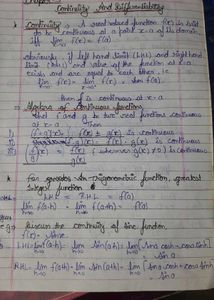 Chapter
Continuity And Differentiability
Continuity :- A real valued function f(x) is said
to be continuous at a point x=a of its domain
iff lim f(x) = f(a)
x→a
obviously, if left hand limit (LHL) and right hand
limit (RHL) and value of the function at x=a
exists and are equal to each other i.e.
lim f(x) = lim f(x) = f(a)
then f is continuous at x=a
Algebra of Continuous functions
that f and g be two real functions continuous
at x=a. Then
f(x) ± g(x) is continuous
f(x) . g(x) is continuous
f(x) (wherever g(x) ≠ 0) is continuous
g(x)
For Trigonometric function, greatest
integer function
LHL = RHL = f(a)
lim f(a-h) = lim f(a+h) = f(a)
Discuss the continuity of sine function.
f(x) = sinx
LHL = lim f(a-h) = lim sin(a-h) = lim (sina cosh - cosa sinh)
= sina
RHL = lim f(a+h) = lim sin(a+h) = lim (sina cosh + cosa sinh)
= sina